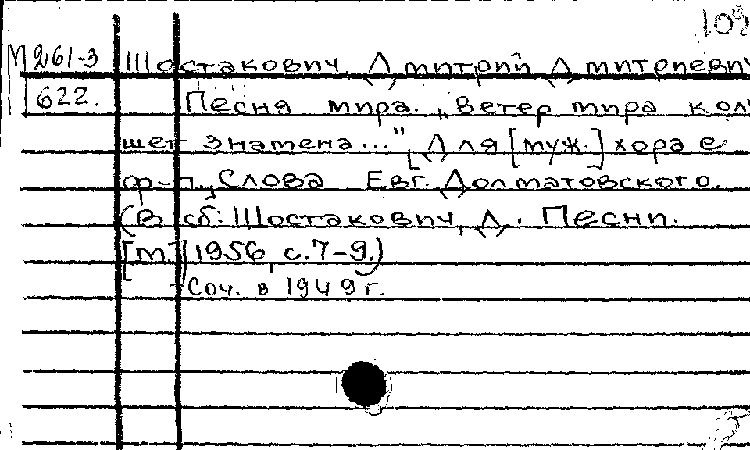 109
М 261-3 Шостакович, Дмитрий Дмитриевич
622. Песня мира. „Ветер мира колы
шет знамена..." Для [муж.] хора с
ф-п., Слова Евг. Долматовского.
(В сб: Шостакович, Д. Песни.
[М.] 1956, с. 7-9.)
Соч. в 1949 г.